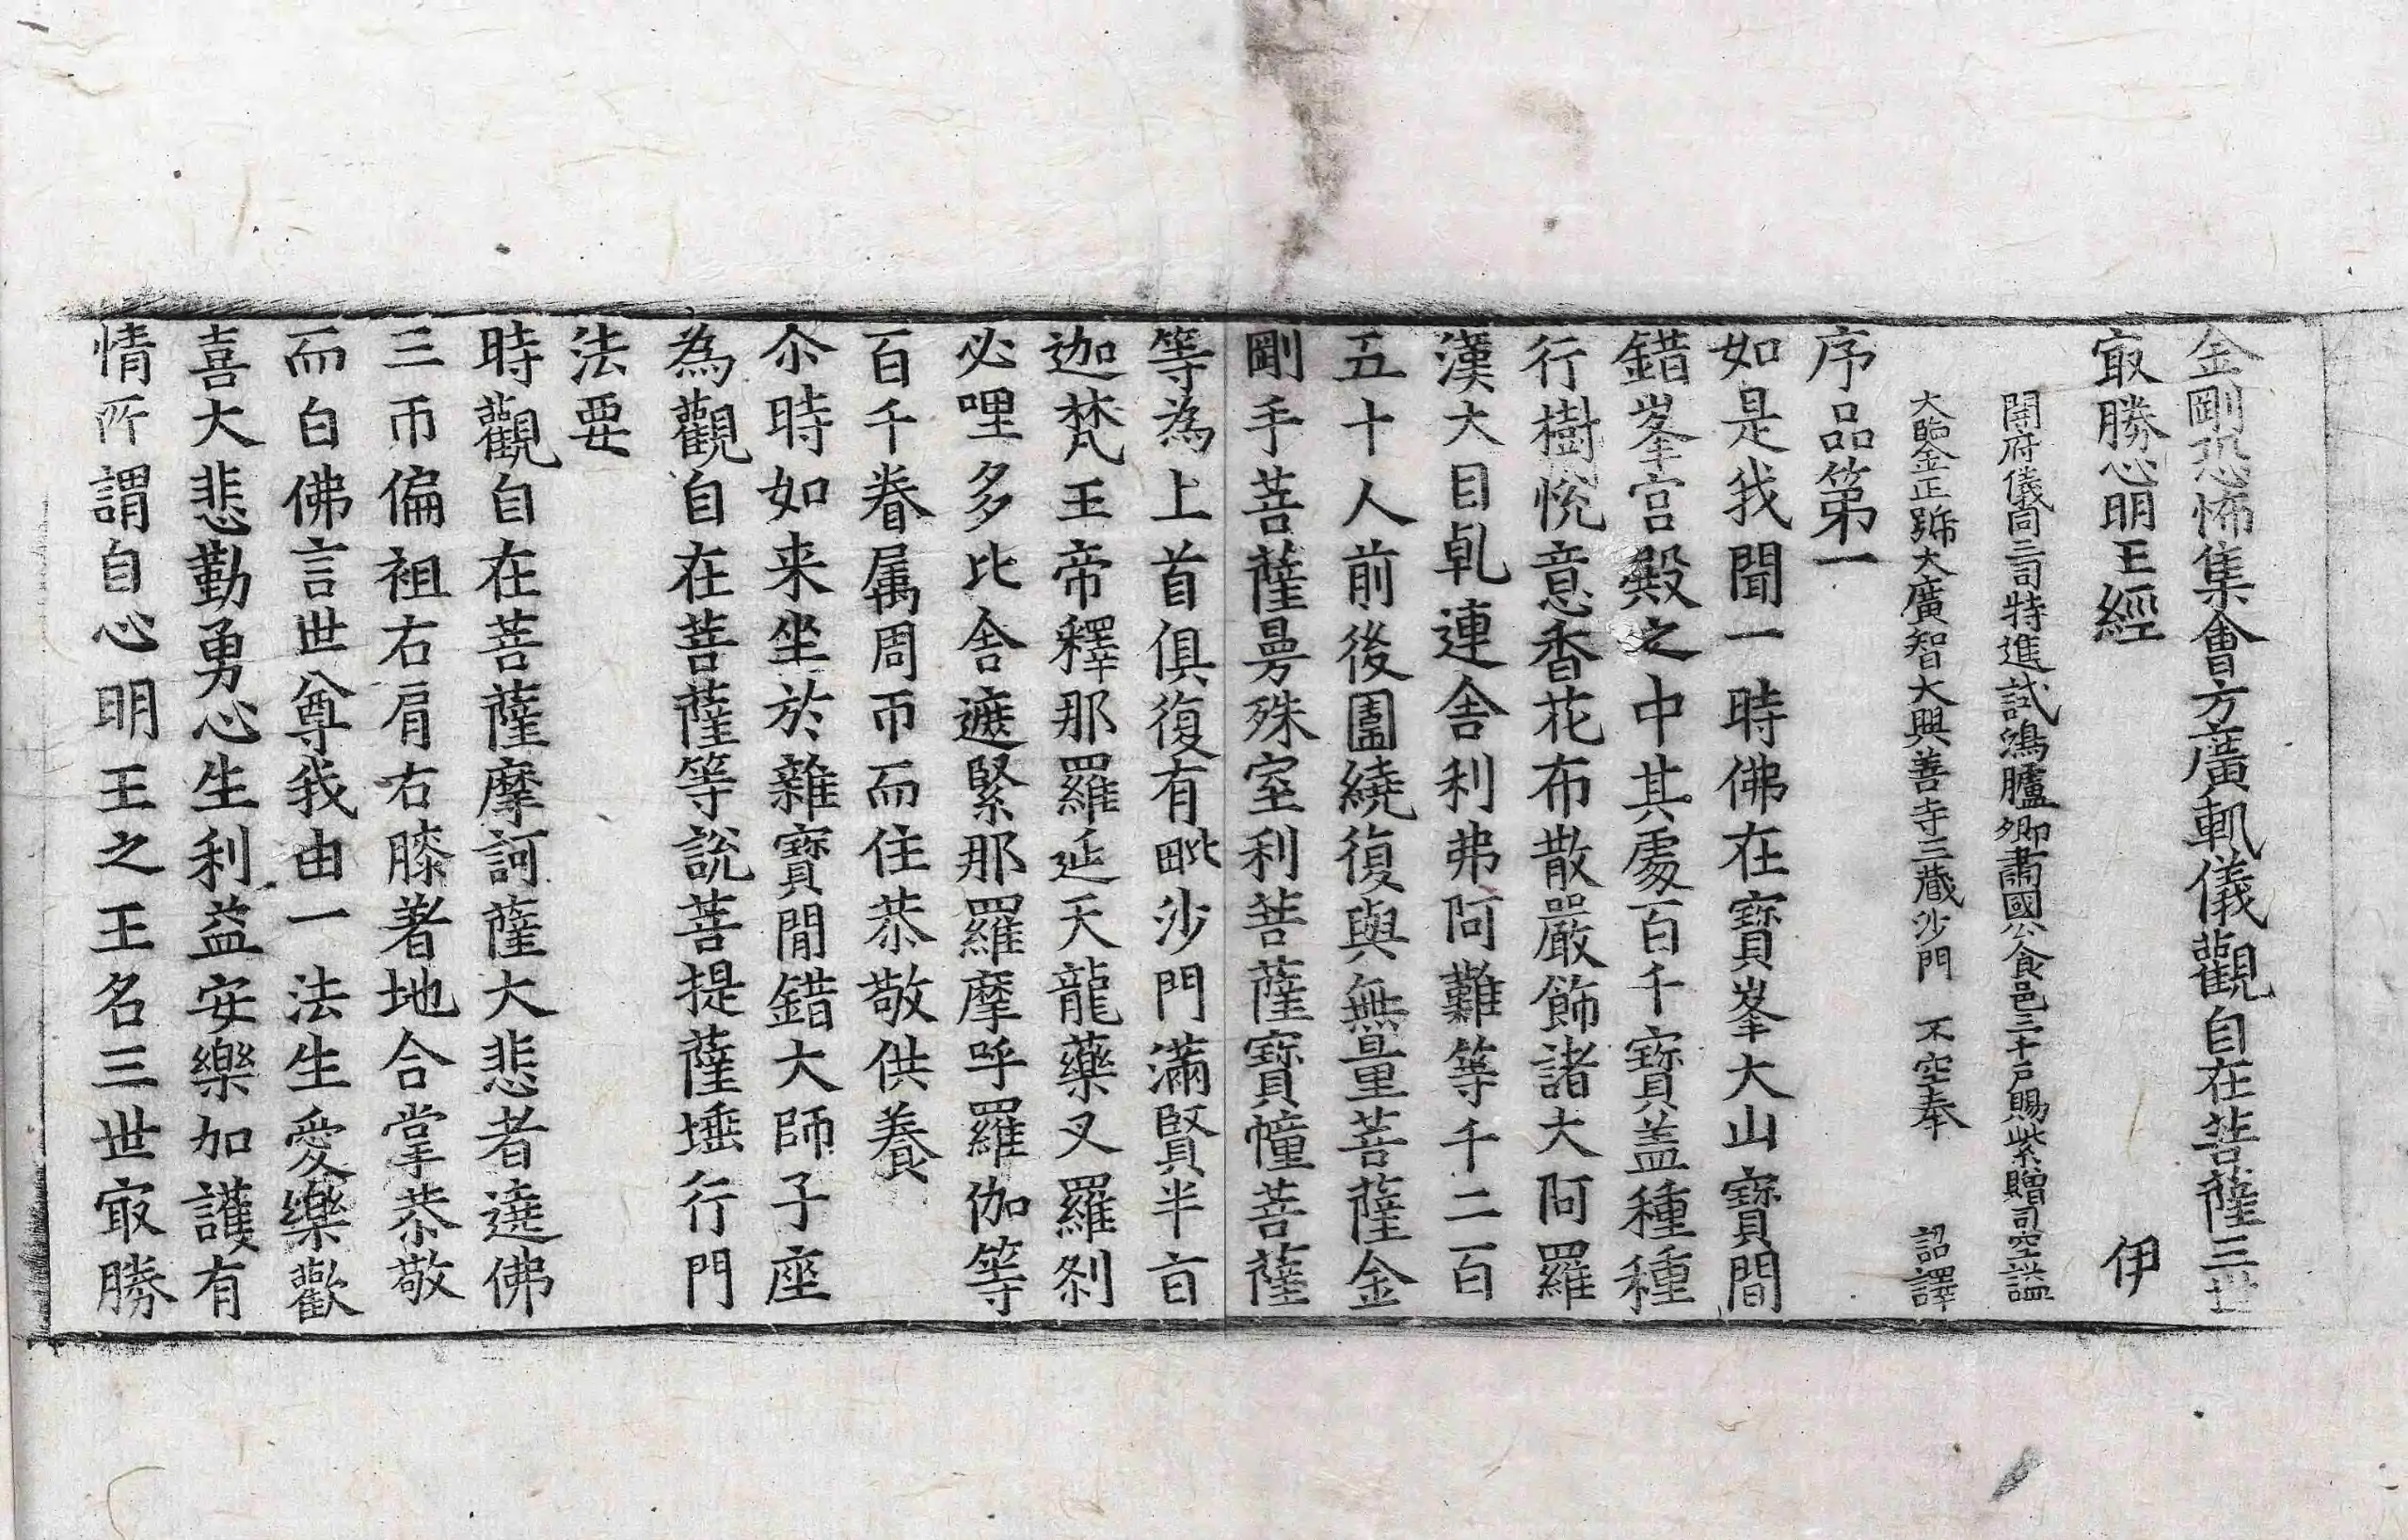 金剛恐怖集會方廣軌儀觀自在菩薩三世
㝡勝心明王經 伊
開府儀同三司特進試鴻臚卿肅國公食邑三千戶賜紫贈司空諡
大鑑正號大廣智大興善寺三藏沙門 不空奉 詔譯
序品第一
如是我聞一時佛在寶峯大山寶間
錯峯宮殿之中其處百千寶盖種種
行樹悅意香花布散嚴飾諸大阿羅
漢大目乹連舍利弗阿難等千二百
五十人前後圍繞復與無量菩薩金
剛手菩薩曼殊室利菩薩寶幢菩薩
等為上首俱復有毗沙門滿賢半旨
迦梵王帝釋那羅延天龍藥叉羅剎
必哩多比舍遮緊那羅摩呼羅伽等
百千眷属周帀而住恭敬供養
尒時如来坐於雜寶間錯大師子座
為觀自在菩薩等說菩提薩埵行門
法要
時觀自在菩薩摩訶薩大悲者遶佛
三帀偏袒右肩右膝著地合掌恭敬
而白佛言世尊我由一法生愛樂歡
喜大悲勤勇心生利益安樂加護有
情所謂自心明王之王名三世㝡勝